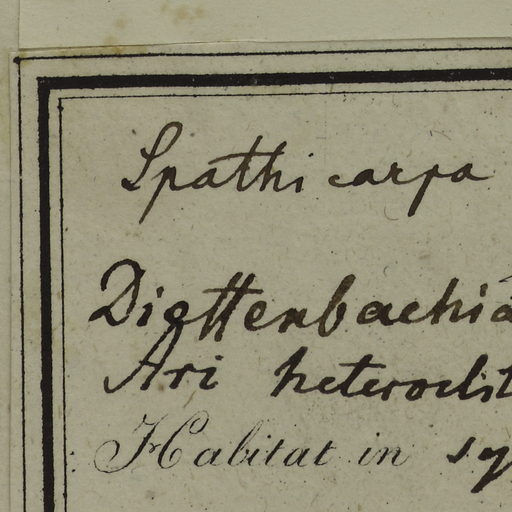 Spathicarpa
Dieffenbachia
Ari heteroclit
Habitat in sy